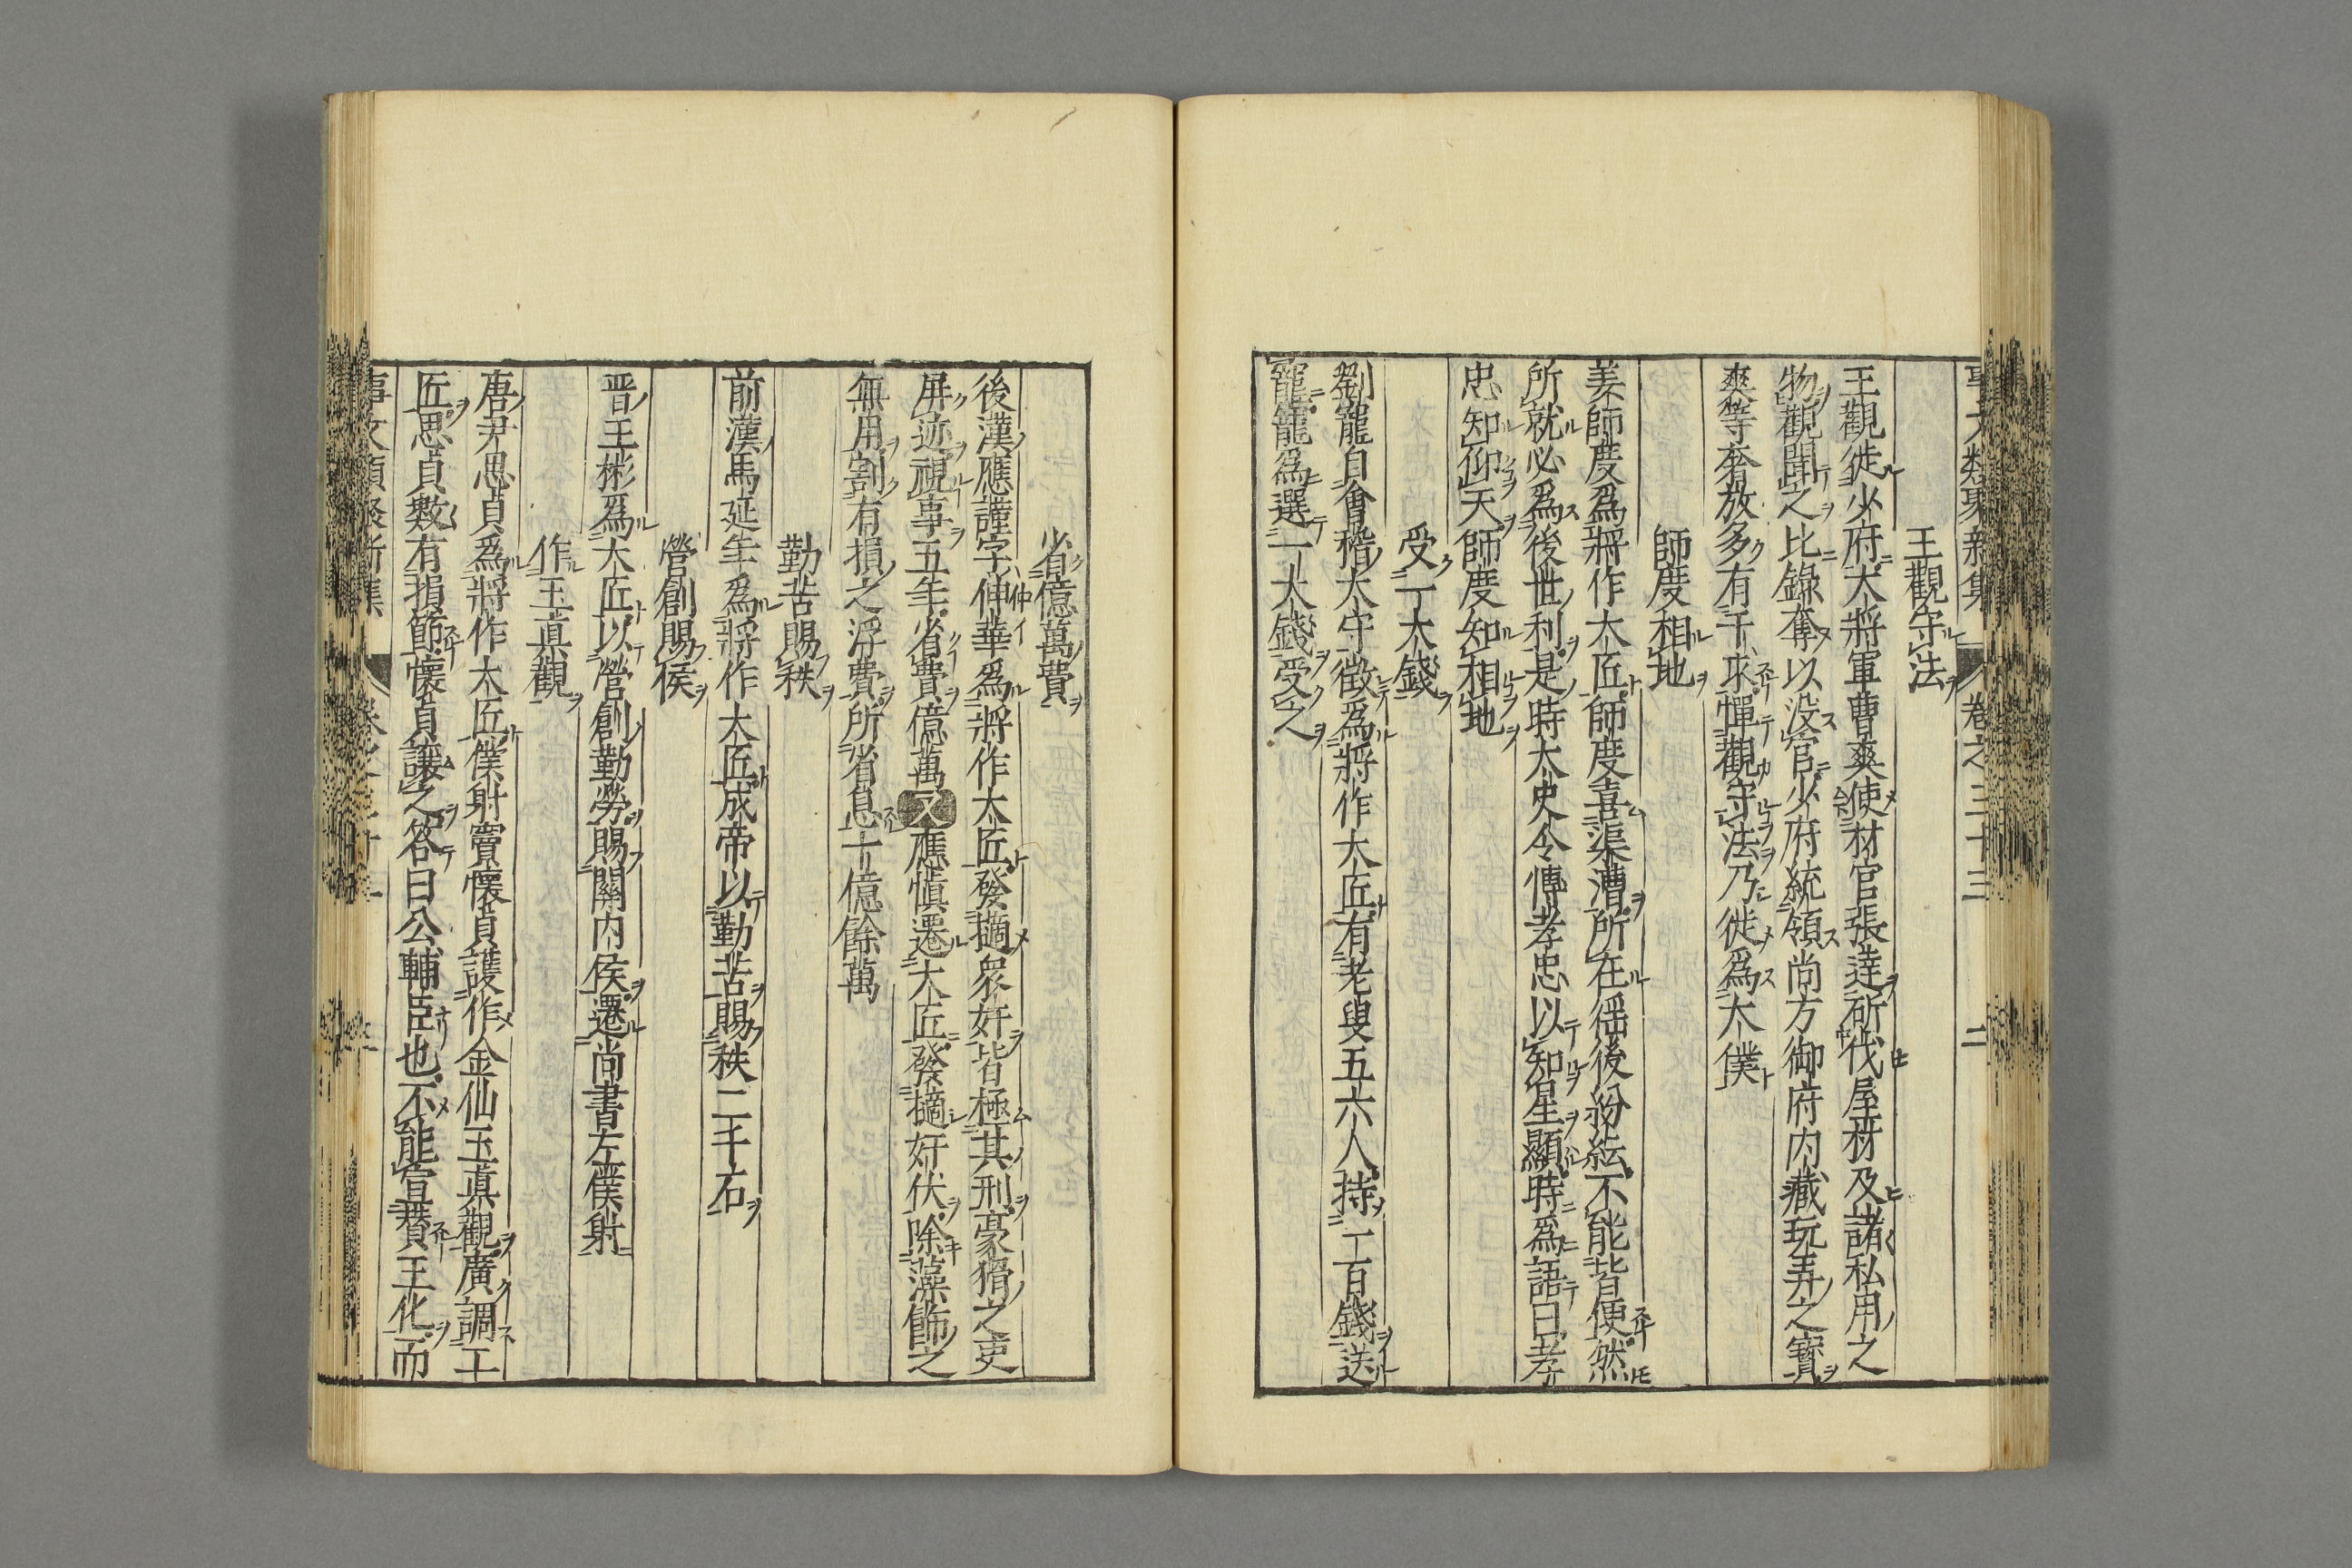 事文類聚新集 卷之三十三 二
王觀守法
王觀徙少府大將軍曹爽使材官張達斫伐屋材及諸私用之
物觀聞之比錄奪以没官少府統領尚方御府内藏玩弄之寶
爽等奢放多有干求憚觀守法乃徙爲太僕
師度相地
姜師度爲將作大匠師度喜渠漕所在徭後紛紜不能皆便然
所就必爲後世利是時太史令傅孝忠以知星顯時爲語曰孝
忠知仰天師度知相地
受一大錢
劉寵自會稽太守徴爲將作大匠有老叟五六人持一百錢送
寵寵爲選一大錢受之
省億萬費
後漢應謹字仲華爲將作大匠發擿衆奸皆極其刑豪猾之吏
屏迹視事五年省費億萬又應慎遷大匠發擿奸伏除藻飾之
無用割有損之浮費所省息十億餘萬
勤苦賜秩
前漢馬延年爲將作大匠成帝以勤苦賜秩二千石
營創賜侯
晋王彬爲大匠以營創勤勞賜關内侯遷尚書左僕射
作玉真觀
唐尹思貞爲將作大匠僕射竇懷貞護作金仙玉真觀廣調工
匠思貞數有損節懷貞讓之答曰公輔臣也不能宣賛王化而
事文類聚新集